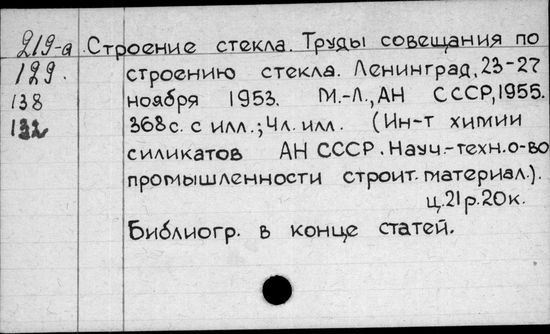 219-а Строение стекла. Труды совещания по
129. строению стекла. Ленинград, 23-27
138 ноября 1953. М.-Л., АН СССР, 1955.
132 368с. с илл.; 4л. илл. (Ин-т химии
силикатов АН СССР. Науч.-техн. о-во
промышленности строит. материал.).
ц. 21р. 20к.
Библиогр. в конце статей.